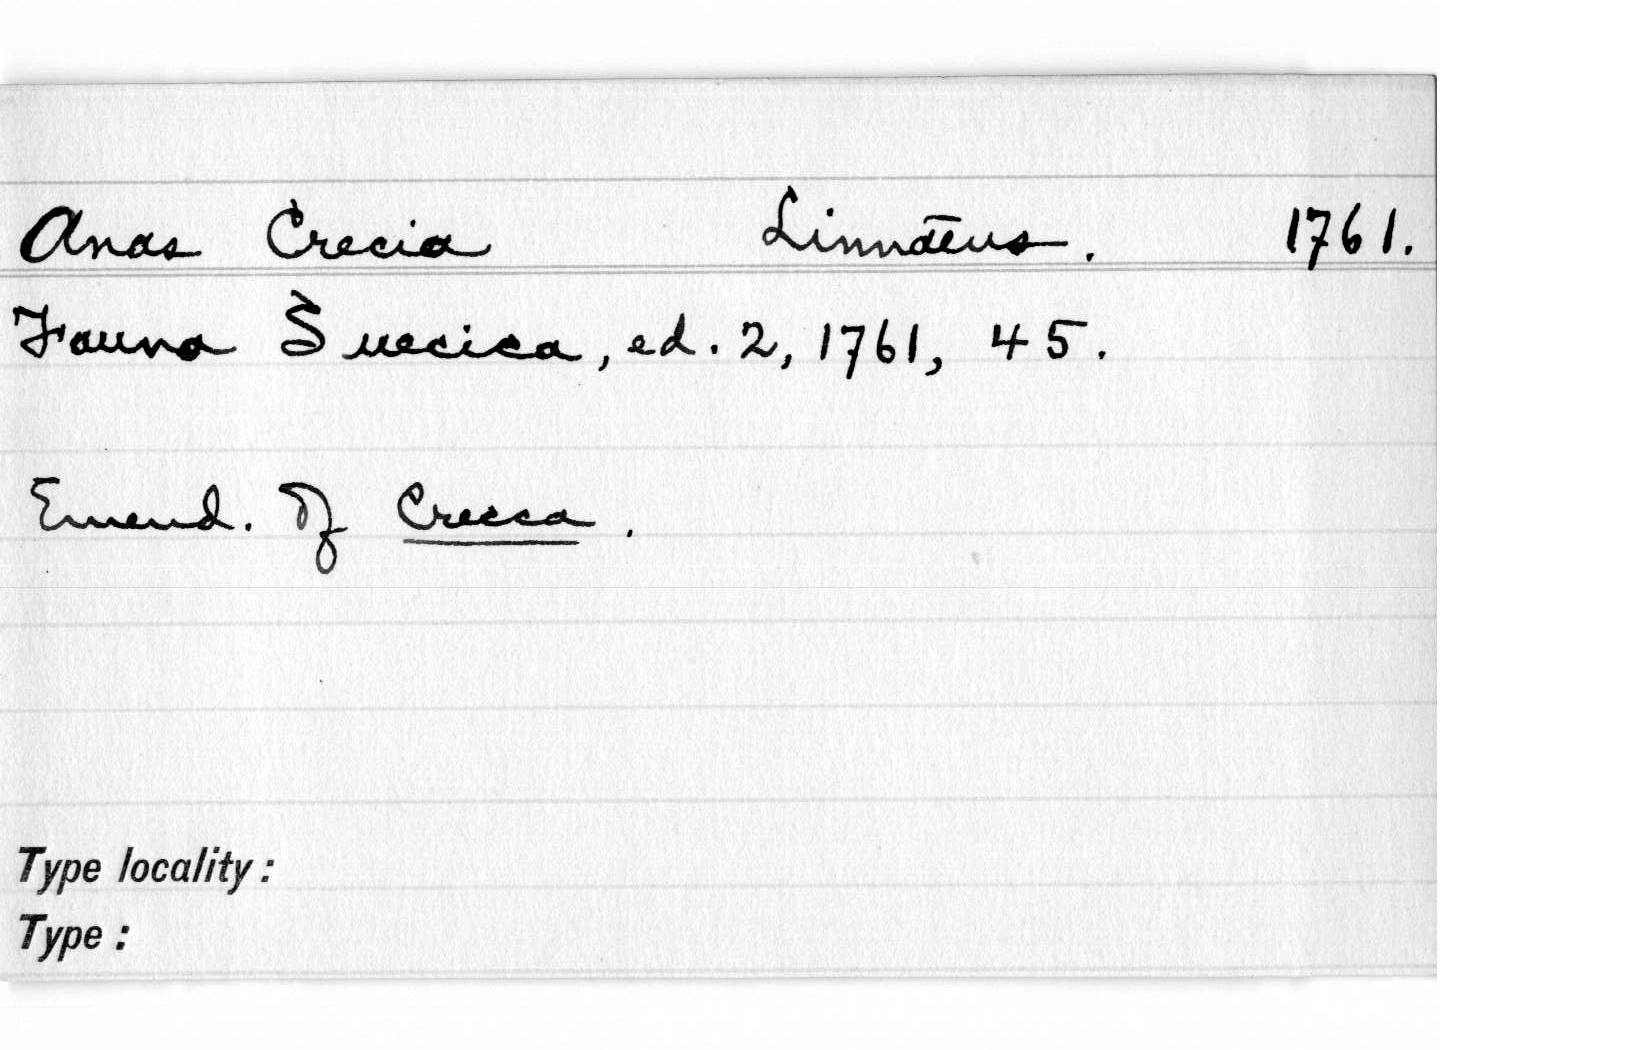 Anas Crecia Linnaeus. 1761.
Fauna Suecica, ed. 2, 1761, 45.
Emend. of Crecca.
Type locality:
Type: